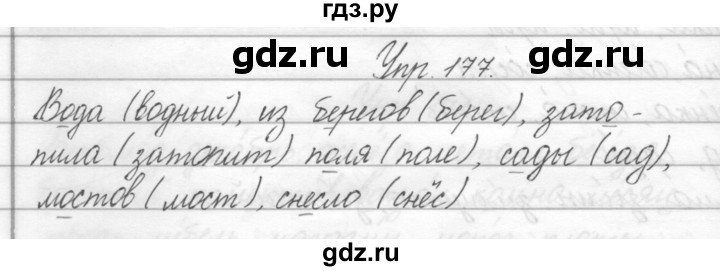 гдз.ру
gdz.ru gdz.ru
Упр. 177.
Вода (водный), из берегов (берег), зато-
пила (затопит) поля (поле), сады (сад),
мостов (мост), снесло (снёс)
gdz.ru